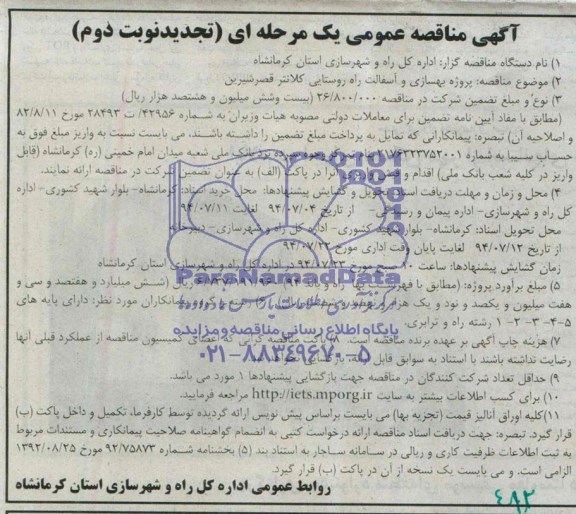 آگهی مناقصه عمومی یک مرحله ای (تجدیدنوبت دوم)
۱) نام دستگاه مناقصه گزار: اداره کل راه و شهرسازی استان کرمانشاه
۲) موضوع مناقصه: پروژه بهسازی و آسفالت راه روستایی کلانتر قصرشیرین
۳) نوع و مبلغ تضمین شرکت در مناقصه ۲۶/۸۰۰/۰۰۰ (بیست وشش میلیون و هشتصد هزار ریال)
(مطابق با مفاد آیین نامه تضمین برای معاملات دولتی مصوبه هیات وزیران به شماره ۴۲۹۵۶/ت ۲۸۴۹۳ مورخ ۸۲/۸/۱۱
و اصلاحیه آن) تبصره: پیمانکارانی که تمایل به پرداخت مبلغ تضمین را داشته باشند، می بایست نسبت به واریز مبلغ فوق به
حساب سیبا به شماره ۲۱۷۶۴۲۳۷۵۲۰۰۱ نزد بانک ملی شعبه میدان امام خمینی (ره) کرمانشاه (قابل
واریز در کلیه شعب بانک ملی) اقدام و در پاکت (الف) به عنوان تضمین شرکت در مناقصه ارائه نمایند.
۴) محل و زمان و مهلت دریافت اسناد، تحویل و گشایش پیشنهادها: محل خرید اسناد: کرمانشاه- بلوار شهید کشوری- اداره
کل راه و شهرسازی- اداره پیمان و رسیدگی- از تاریخ ۹۴/۰۷/۰۴ لغایت ۹۴/۰۷/۱۱
محل تحویل اسناد: کرمانشاه- بلوار شهید کشوری- اداره کل راه و شهرسازی- دبیرخانه
از تاریخ ۹۴/۰۷/۱۲ لغایت پایان وقت اداری مورخ ۹۴/۰۷/۲۲
زمان گشایش پیشنهادها: ساعت ۱۰ صبح مورخ ۹۴/۰۷/۲۳ در اداره کل راه و شهرسازی استان کرمانشاه
۵) مبلغ برآورد پروژه: (مطابق با فهرست بها راه و باند ۹۴) ریال (شش میلیارد و هفتصد و سی و
هفت میلیون و یکصد و نود و یک هزار و پیمانکاران مورد نظر: دارای پایه های
۵-۴- ۳- ۲- ۱ رشته راه و ترابری.
۷) هزینه چاپ آگهی بر عهده برنده مناقصه است. ۸) پاکت مناقصه گرانی که اعضای کمیسیون مناقصه از عملکرد قبلی آنها
رضایت نداشته باشند با استناد به سوابق قابل
۹) حداقل تعداد شرکت کنندگان در مناقصه جهت بازگشایی پیشنهادها ۱ مورد می باشد.
۱۰) برای کسب اطلاعات بیشتر به سایت http://iets.mporg.ir مراجعه فرمایید.
۱۱)کلیه اوراق آنالیز قیمت (تجزیه بها) می بایست براساس پیش نویس ارائه گردیده توسط کارفرما، تکمیل و داخل پاکت (ب)
قرار گیرد. تبصره: جهت دریافت اسناد مناقصه ارائه درخواست کتبی به انضمام گواهینامه صلاحیت پیمانکاری و مستندات مربوط
به ثبت اطلاعات ظرفیت کاری و ریالی در سامانه ساجار به استناد بند (۵) بخشنامه شماره ۹۲/۷۵۸۷۳ مورخ ۱۳۹۲/۰۸/۲۵
الزامی است. و می بایست یک نسخه از آن در پاکت (ب) قرار گیرد.
روابط عمومی اداره کل راه و شهرسازی استان کرمانشاه
۴۹۲
ParsNamadData
پایگاه اطلاع رسانی مناقصه و مزایده
۰۲۱-۸۸۳۴۹۶۷۰-۵